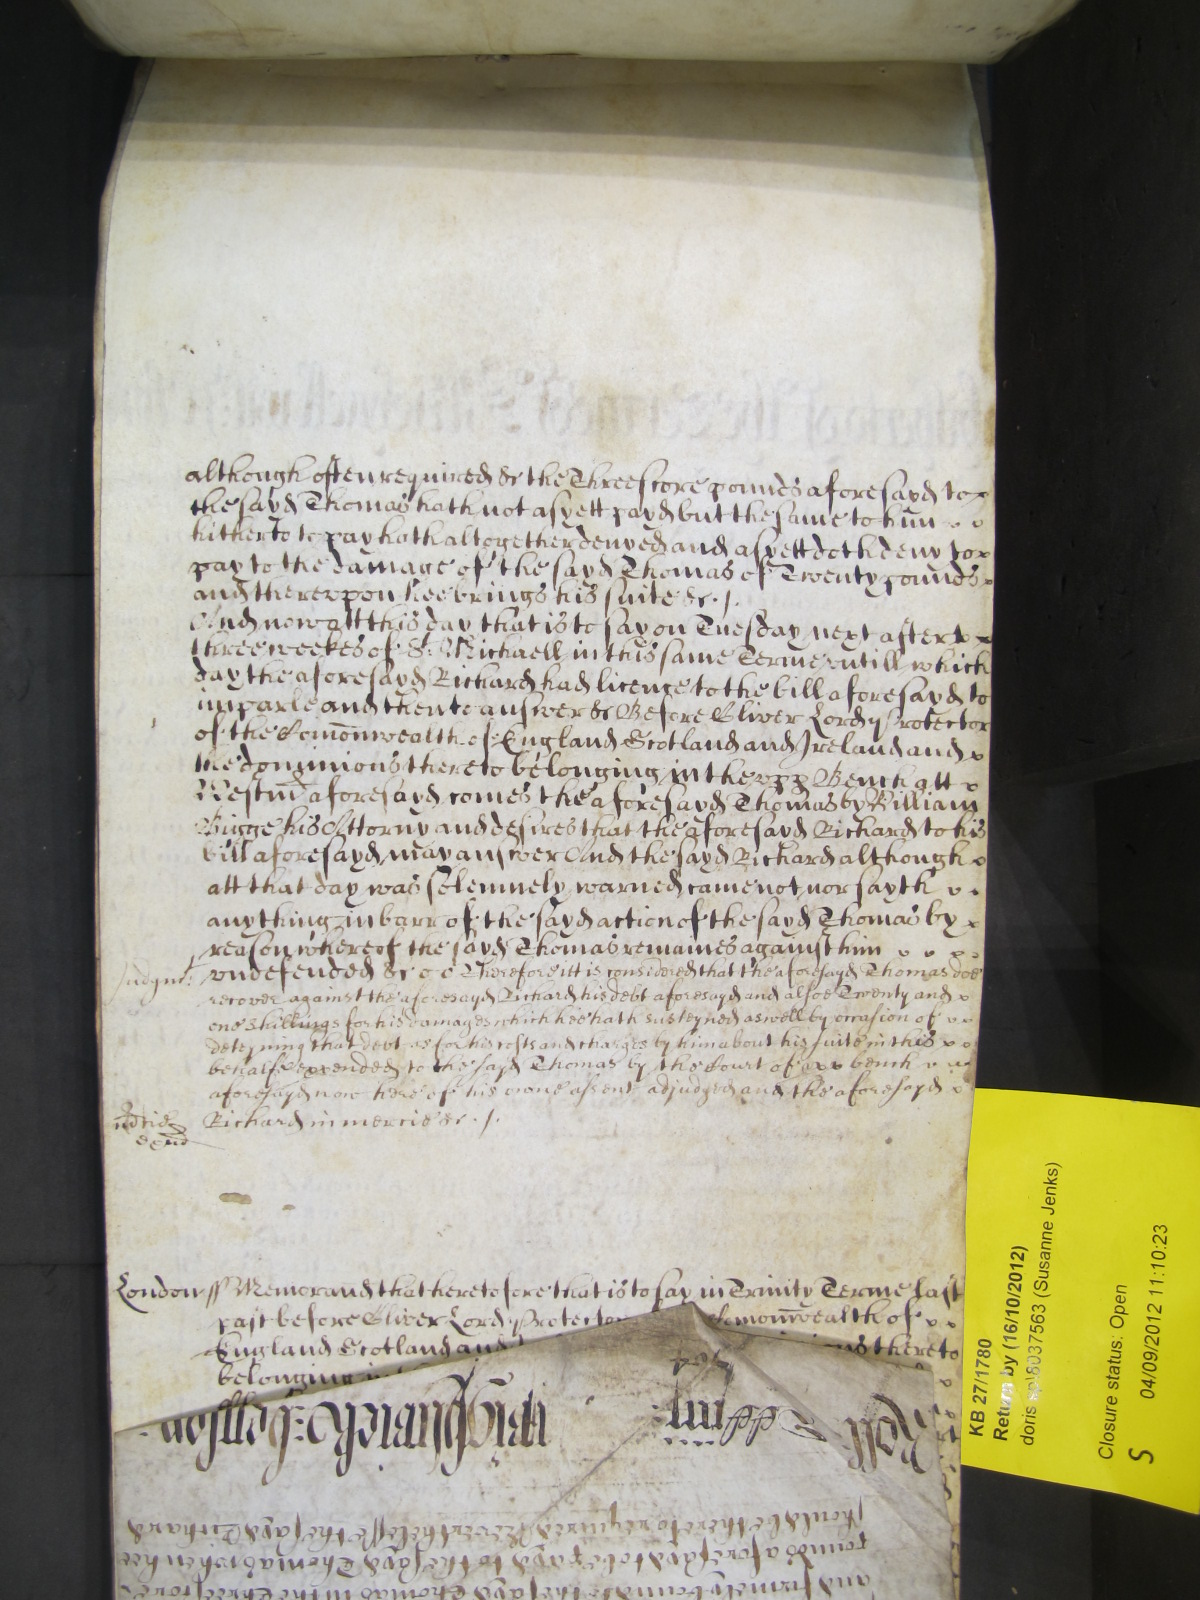 although often required &c the Threescore pounds aforesayd to
the sayd Thomas hath not as yett payd but the same to him
hitherto to pay hath altogether denyed and as yett doth deny to
pay to the damage of the sayd Thomas of Twenty pounds
and thereupon hee brings his suite &c ./.
And now att this day that is to say on Tuesday next after
three weekes of St Michaell in this same Terme untill which
day the aforesayd Richard had licence to the bill aforesayd to
imparle and then to answer &c Before Oliver Lord Protector
of the Comonwealth of England Scotland and Ireland and
the dominions thereto belonging in the upp Bench att
Westm aforesayd comes the aforesayd Thomas by William
Bigge his Attorny and desires that the aforesayd Richard to his
bill aforesayd may answer And the sayd Richard although
att that day was solemnely warned came not nor sayth
anything in barr of the sayd action of the sayd Thomas by
reason whereof the sayd Thomas remaines against him
Judgmt undefended &c Therefore itt is considered that the aforesayd Thomas doe
recover against the aforesayd Richard his debt aforesayd and alsoe Twenty and
one shillings for his damages which hee hath susteyned aswell by occasion of
deteyning that debt as for his costs and charges by him about his suite in this
behalfe expended to the sayd Thomas by the Court of upp bench
aforesayd now here of his owne assent adjudged and the aforesayd
Richard in mercie &c ./.
London ss Memorand that heretofore that is to say in Trinity Terme last
past before Oliver Lord Protector Comonwealth of
England Scotland and thereto
belonging
Roll
and firmely bound to the sayd Thomas in the Threescore
pounds aforesayd to be payd to the sayd Thomas when hee
should be thereto required Neverthelesse the sayd Richard
KB 27/1780
Return by (16/10/2012)
doris 8037563 (Susanne Jenks)
Closure status: Open
S 04/09/2012 11:10:23